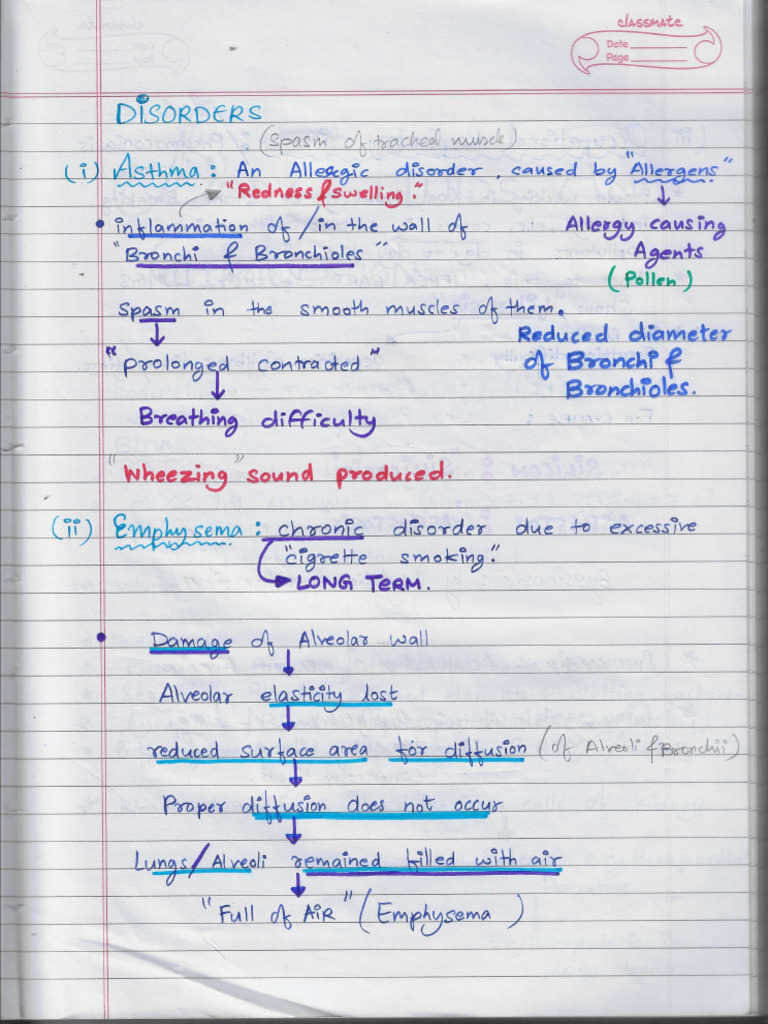 classmate
Date
Page
DISORDERS
(spasm of tracheal muscle)
(i) Asthma : An Allergic disorder, caused by "Allergens"
"Redness & swelling."
• inflammation of / in the wall of
"Bronchi & Bronchioles"
Allergy causing
Agents
(Pollen)
Spasm in the smooth muscles of them.
"prolonged contracted"
Reduced diameter
of Bronchi &
Bronchioles.
Breathing difficulty
"Wheezing" sound produced.
(ii) Emphysema : chronic disorder due to excessive
"cigrette smoking."
LONG TERM.
• Damage of Alveolar wall
Alveolar elasticity lost
reduced surface area for diffusion (of Alveoli & Bronchii)
Proper diffusion does not occur
Lungs / Alveoli remained filled with air
"Full of AIR" (Emphysema)